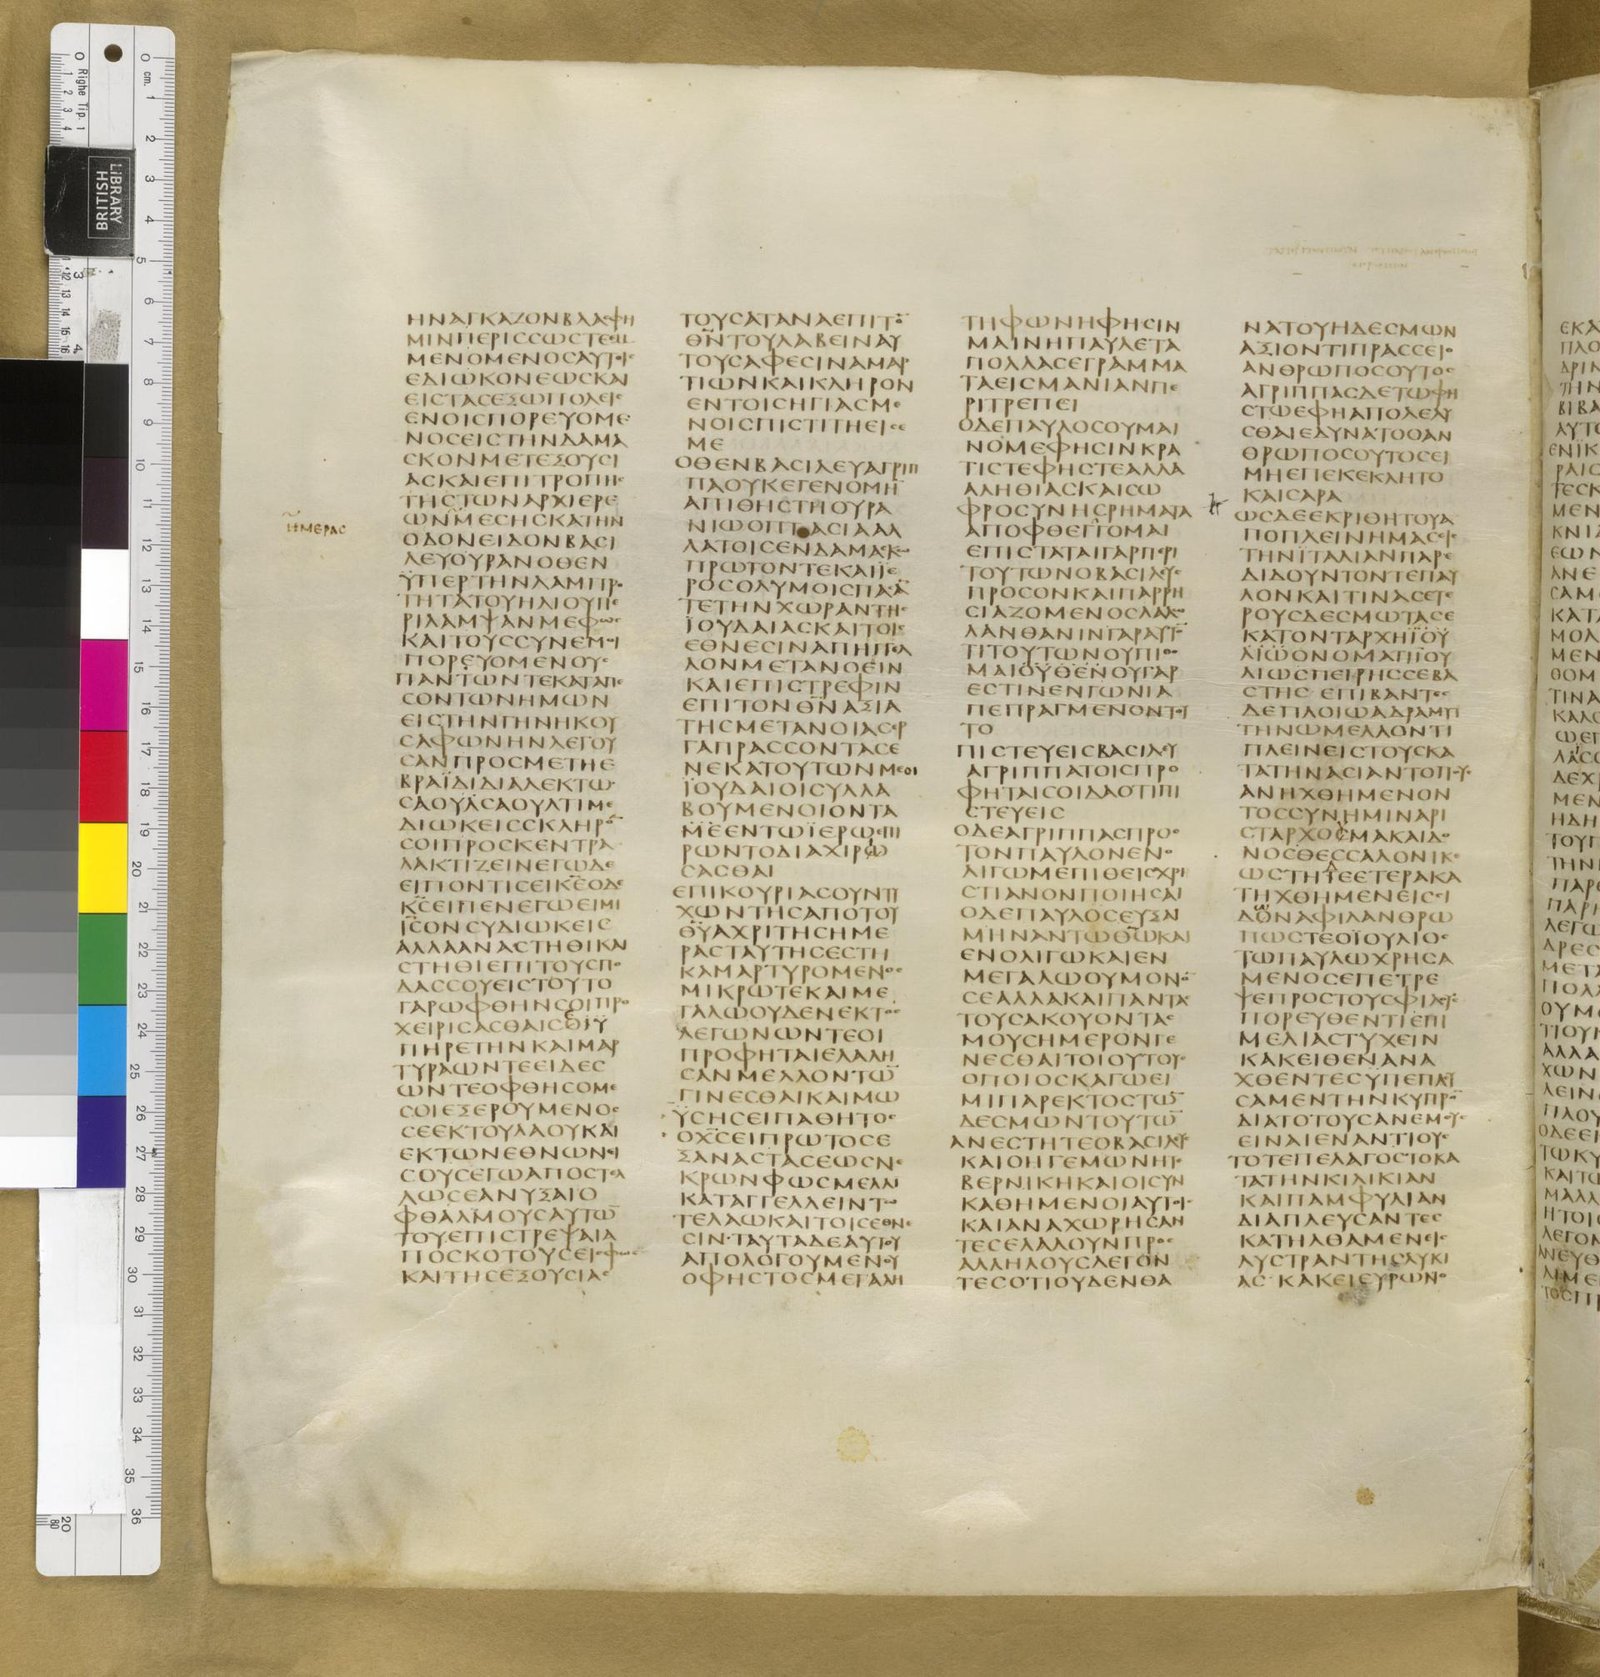 ΗΝΑΓΚΑΖΟΝΒΛΑΣΦΗ
ΜΙΝΠΕΡΙΣΣΩΣΤΕΕΜ
ΜΕΝΟΜΕΝΟΣΑΥΤΟΙΣ
ΕΔΙΩΚΟΝΕΩΣΚΑΙ
ΕΙΣΤΑΣΕΞΩΠΟΛΕΙΣ
ΕΝΟΙΣΠΟΡΕΥΟΜΕ
ΝΟΣΕΙΣΤΗΝΔΑΜΑ
ΣΚΟΝΜΕΤΕΞΟΥΣΙ
ΑΣΚΑΙΕΠΙΤΡΟΠΗΣ
ΤΗΣΤΩΝΑΡΧΙΕΡΕ
ΩΝΜΕΣΗΣΚΑΤΗΝ
ΗΜΕΡΑΣ
ΟΔΟΝΕΙΔΟΝΒΑΣΙ
ΛΕΥΟΥΡΑΝΟΘΕΝ
ΫΠΕΡΤΗΝΛΑΜΠΡΟ
ΤΗΤΑΤΟΥΗΛΙΟΥΠΕ
ΡΙΛΑΜΨΑΝΜΕΦΩΣ
ΚΑΙΤΟΥΣΣΥΝΕΜΟΙ
ΠΟΡΕΥΟΜΕΝΟΥΣ
ΠΑΝΤΩΝΤΕΚΑΤΑΠΕ
ΣΟΝΤΩΝΗΜΩΝ
ΕΙΣΤΗΝΓΗΝΗΚΟΥ
ΣΑΦΩΝΗΝΛΕΓΟΥ
ΣΑΝΠΡΟΣΜΕΤΗΕ
ΒΡΑΪΔΙΔΙΑΛΕΚΤΩ
ΣΑΟΥΛΣΑΟΥΛΤΙΜΕ
ΔΙΩΚΕΙΣΣΚΛΗΡΟΝ
ΣΟΙΠΡΟΣΚΕΝΤΡΑ
ΛΑΚΤΙΖΕΙΝΕΓΩΔΕ
ΕΙΠΟΝΤΙΣΕΙΚΕΟΔΕ
ΚΣΕΙΠΕΝΕΓΩΕΙΜΙ
ΙΣΟΝΣΥΔΙΩΚΕΙΣ
ΑΛΛΑΑΝΑΣΤΗΘΙΚΑΙ
ΣΤΗΘΙΕΠΙΤΟΥΣΠΟ
ΔΑΣΣΟΥΕΙΣΤΟΥΤΟ
ΓΑΡΩΦΘΗΝΣΟΙΠΡΟ
ΧΕΙΡΙΣΑΣΘΑΙΣΕΫ
ΠΗΡΕΤΗΝΚΑΙΜΑΡ
ΤΥΡΑΩΝΤΕΕΙΔΕΣ
ΩΝΤΕΟΦΘΗΣΟΜΕ
ΣΟΙΕΞΕΡΟΥΜΕΝΟΣ
ΣΕΕΚΤΟΥΛΑΟΥΚΑΙ
ΕΚΤΩΝΕΘΝΩΝΟΙ
ΣΟΥΣΕΓΩΑΠΟΣΤΕΛ
ΛΩΣΕΑΝΥΞΑΙΟ
ΦΘΑΛΜΟΥΣΑΥΤΩ̅
ΤΟΥΕΠΙΣΤΡΕΨΑΙΑ
ΠΟΣΚΟΤΟΥΣΕΙΣΦΩΣ
ΚΑΙΤΗΣΕΞΟΥΣΙΑΣ
ΤΟΥΣΑΤΑΝΑΕΠΙΤΟ̅
ΘΝΤΟΥΛΑΒΕΙΝΑΥ
ΤΟΥΣΑΦΕΣΙΝΑΜΑΡ
ΤΙΩΝΚΑΙΚΛΗΡΟΝ
ΕΝΤΟΙΣΗΓΙΑΣΜΕ
ΝΟΙΣΠΙΣΤΙΤΗΕΙΣΕ
ΜΕ
ΟΘΕΝΒΑΣΙΛΕΥΑΓΡΙΠ
ΠΑΟΥΚΕΓΕΝΟΜΗ̅
ΑΠΙΘΗΣΤΗΟΥΡΑ
ΝΙΩΟΠΤΑΣΙΑΑΛ
ΛΑΤΟΙΣΕΝΔΑΜΑΣΚΩ
ΠΡΩΤΟΝΤΕΚΑΙΪΕ
ΡΟΣΟΛΥΜΟΙΣΠΑΣΑ̅
ΤΕΤΗΝΧΩΡΑΝΤΗΣ
ΪΟΥΔΑΙΑΣΚΑΙΤΟΙΣ
ΕΘΝΕΣΙΝΑΠΗΓΓΕΛ
ΛΟΝΜΕΤΑΝΟΕΙΝ
ΚΑΙΕΠΙΣΤΡΕΦΙΝ
ΕΠΙΤΟΝΘΝΑΞΙΑ
ΤΗΣΜΕΤΑΝΟΙΑΣΕΡ
ΓΑΠΡΑΣΣΟΝΤΑΣΕ
ΝΕΚΑΤΟΥΤΩΝΜΕΟΙ
ΪΟΥΔΑΙΟΙΣΥΛΛΑ
ΒΟΥΜΕΝΟΙΟΝΤΑ
ΜΕΕΝΤΩΪΕΡΩΕΠΙ
ΡΩΝΤΟΔΙΑΧΙΡΩ
ΣΑΣΘΑΙ
ΕΠΙΚΟΥΡΙΑΣΟΥΝΤΥ
ΧΩΝΤΗΣΑΠΟΤΟΥ
ΘΥΑΧΡΙΤΗΣΗΜΕ
ΡΑΣΤΑΥΤΗΣΕΣΤΗ
ΚΑΜΑΡΤΥΡΟΜΕΝΟΣ
ΜΙΚΡΩΤΕΚΑΙΜΕ
ΓΑΛΩΟΥΔΕΝΕΚΤΟΣ
ΛΕΓΩΝΩΝΤΕΟΙ
ΠΡΟΦΗΤΑΙΕΛΑΛΗ
ΣΑΝΜΕΛΛΟΝΤΩ̅
ΓΙΝΕΣΘΑΙΚΑΙΜΩ
ΫΣΗΣΕΙΠΑΘΗΤΟΣ
ΟΧΣΕΙΠΡΩΤΟΣΕ
ΞΑΝΑΣΤΑΣΕΩΣΝΕ
ΚΡΩΝΦΩΣΜΕΛΛΙ
ΚΑΤΑΓΓΕΛΛΕΙΝΤΩ
ΤΕΛΑΩΚΑΙΤΟΙΣΕΘΝΕ
ΣΙΝ·ΤΑΥΤΑΔΕΑΥΤΟΥ
ΑΠΟΛΟΓΟΥΜΕΝΟΥ
ΟΦΗΣΤΟΣΜΕΓΑΛΗ
ΤΗΦΩΝΗΦΗΣΙΝ
ΜΑΙΝΗΠΑΥΛΕΤΑ
ΠΟΛΛΑΣΕΓΡΑΜΜΑ
ΤΑΕΙΣΜΑΝΙΑΝΠΕ
ΡΙΤΡΕΠΕΙ
ΟΔΕΠΑΥΛΟΣΟΥΜΑΙ
ΝΟΜΕΦΗΣΙΝΚΡΑ
ΤΙΣΤΕΦΗΣΤΕΑΛΛΑ
ΑΛΗΘΙΑΣΚΑΙΣΩ
ΦΡΟΣΥΝΗΣΡΗΜΑΤΑ
ΑΠΟΦΘΕΓΓΟΜΑΙ
ΕΠΙΣΤΑΤΑΙΓΑΡΠΕΡΙ
ΤΟΥΤΩΝΟΒΑΣΙΛΕΥΣ
ΠΡΟΣΟΝΚΑΙΠΑΡΡΗ
ΣΙΑΖΟΜΕΝΟΣΛΑΛΩ
ΛΑΝΘΑΝΙΝΓΑΡΑΥΤΟ̅
ΤΙΤΟΥΤΩΝΟΥΠΙΘΟ
ΜΑΙΟΥΘΕΝΟΥΓΑΡ
ΕΣΤΙΝΕΝΓΩΝΙΑ
ΠΕΠΡΑΓΜΕΝΟΝΤΟΥ
ΤΟ
ΠΙΣΤΕΥΕΙΣΒΑΣΙΛΕΥ
ΑΓΡΙΠΠΑΤΟΙΣΠΡΟ
ΦΗΤΑΙΣΟΙΔΑΟΤΙΠΙ
ΣΤΕΥΕΙΣ
ΟΔΕΑΓΡΙΠΠΑΣΠΡΟΣ
ΤΟΝΠΑΥΛΟΝΕΝΟ
ΛΙΓΩΜΕΠΙΘΕΙΣΧΡΙ
ΣΤΙΑΝΟΝΠΟΙΗΣΑΙ
ΟΔΕΠΑΥΛΟΣΕΥΞΑΙ
ΜΗΝΑΝΤΩΘΩΚΑΙ
ΕΝΟΛΙΓΩΚΑΙΕΝ
ΜΕΓΑΛΩΟΥΜΟΝΟ̅
ΣΕΑΛΛΑΚΑΙΠΑΝΤΑΣ
ΤΟΥΣΑΚΟΥΟΝΤΑΣ
ΜΟΥΣΗΜΕΡΟΝΓΕ
ΝΕΣΘΑΙΤΟΙΟΥΤΟΥΣ
ΟΠΟΙΟΣΚΑΓΩΕΙ
ΜΙΠΑΡΕΚΤΟΣΤΩ̅
ΔΕΣΜΩΝΤΟΥΤΩ̅
ΑΝΕΣΤΗΤΕΟΒΑΣΙΛΕΥΣ
ΚΑΙΟΗΓΕΜΩΝΗΤΕ
ΒΕΡΝΙΚΗΚΑΙΟΙΣΥΝ
ΚΑΘΗΜΕΝΟΙΑΥΤΟΙΣ
ΚΑΙΑΝΑΧΩΡΗΣΑΝ
ΤΕΣΕΛΑΛΟΥΝΠΡΟΣ
ΑΛΛΗΛΟΥΣΛΕΓΟΝ
ΤΕΣΟΤΙΟΥΔΕΝΘΑ
ΝΑΤΟΥΗΔΕΣΜΩΝ
ΑΞΙΟΝΤΙΠΡΑΣΣΕΙΟ
ΑΝΘΡΩΠΟΣΟΥΤΟΣ
ΑΓΡΙΠΠΑΣΔΕΤΩΦΗ
ΣΤΩΕΦΗΑΠΟΛΕΛΥ
ΣΘΑΙΕΔΥΝΑΤΟΟΑΝ
ΘΡΩΠΟΣΟΥΤΟΣΕΙ
ΜΗΕΠΕΚΕΚΛΗΤΟ
ΚΑΙΣΑΡΑ
ΩΣΔΕΕΚΡΙΘΗΤΟΥΑ
ΠΟΠΛΕΙΝΗΜΑΣΕΙΣ
ΤΗΝΪΤΑΛΙΑΝΠΑΡΕ
ΔΙΔΟΥΝΤΟΝΤΕΠΑΥ
ΛΟΝΚΑΙΤΙΝΑΣΕΤΕ
ΡΟΥΣΔΕΣΜΩΤΑΣΕ
ΚΑΤΟΝΤΑΡΧΗΪΟΥ
ΛΙΩΟΝΟΜΑΤΙΪΟΥ
ΛΙΩΣΠΕΙΡΗΣΣΕΒΑ
ΣΤΗΣ ΕΠΙΒΑΝΤΕΣ
ΔΕΠΛΟΙΩΑΔΡΑΜΥΤ
ΤΗΝΩΜΕΛΛΟΝΤΙ
ΠΛΕΙΝΕΙΣΤΟΥΣΚΑ
ΤΑΤΗΝΑΣΙΑΝΤΟΠΟΥΣ
ΑΝΗΧΘΗΜΕΝΟΝ
ΤΟΣΣΥΝΗΜΙΝΑΡΙ
ΣΤΑΡΧΟΣΜΑΚΑΙΔΟ
ΝΟΣΘΕΣΣΑΛΟΝΙΚΕ
ΩΣΤΗΤΕΕΤΕΡΑΚΑ
ΤΗΧΘΗΜΕΝΕΙΣΣΙ
ΔΟΝΑΦΙΛΑΝΘΡΩ
ΠΩΣΤΕΟΪΟΥΛΙΟΣ
ΤΩΠΑΥΛΩΧΡΗΣΑ
ΜΕΝΟΣΕΠΕΤΡΕ
ΨΕΠΡΟΣΤΟΥΣΦΙΛΟΥΣ
ΠΟΡΕΥΘΕΝΤΙΕΠΙ
ΜΕΛΙΑΣΤΥΧΕΙΝ
ΚΑΚΕΙΘΕΝΑΝΑ
ΧΘΕΝΤΕΣΫΠΕΠΛΕΥ
ΣΑΜΕΝΤΗΝΚΥΠΡΟ̅
ΔΙΑΤΟΤΟΥΣΑΝΕΜΟΥΣ
ΕΙΝΑΙΕΝΑΝΤΙΟΥΣ
ΤΟΤΕΠΕΛΑΓΟΣΤΟΚΑ
ΤΑΤΗΝΚΙΛΙΚΙΑΝ
ΚΑΙΠΑΜΦΥΛΙΑΝ
ΔΙΑΠΛΕΥΣΑΝΤΕΣ
ΚΑΤΗΛΘΑΜΕΝΕΙΣ
ΛΥΣΤΡΑΝΤΗΣΛΥΚΙ
ΑΣ ΚΑΚΕΙΕΥΡΩΝΟ
LIBRARY
BRITISH
Righe Tip. 1
cm.